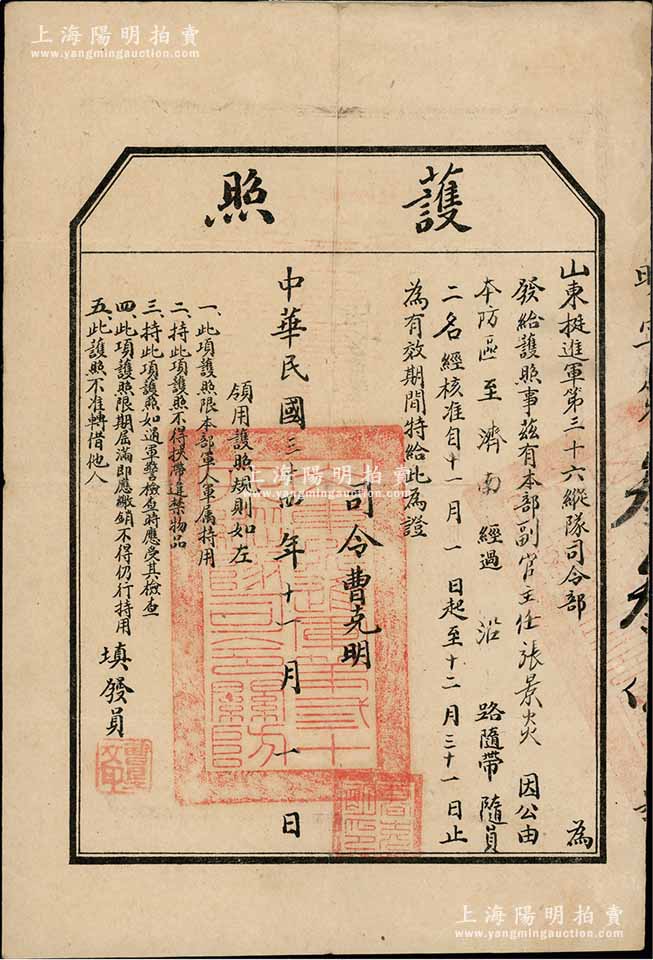 上海陽明拍賣
www.yangmingauction.com
護照
山東挺進軍第三十六縱隊司令部 為
發給護照事茲有本部副官主任張景炎 因公由
本防區至濟南經過沿路隨帶隨員
二名經核准自十一月一日起至十二月三十一日止
為有效期間特給此為證
司令曹克明
中華民國三四年十一月一日
領用護照規則如左
一、此項護照限本部軍人軍属持用
二、持此項護照不得挾帶違禁物品
三、持此項護照如遇軍警檢查時應受其檢查
四、此項護照限期屆滿即應繳銷不得仍行持用
五、此護照不准轉借他人
填發員
上海陽明拍賣
www.yangmingauction.com
上海陽明拍賣
www.yangmingauction.com